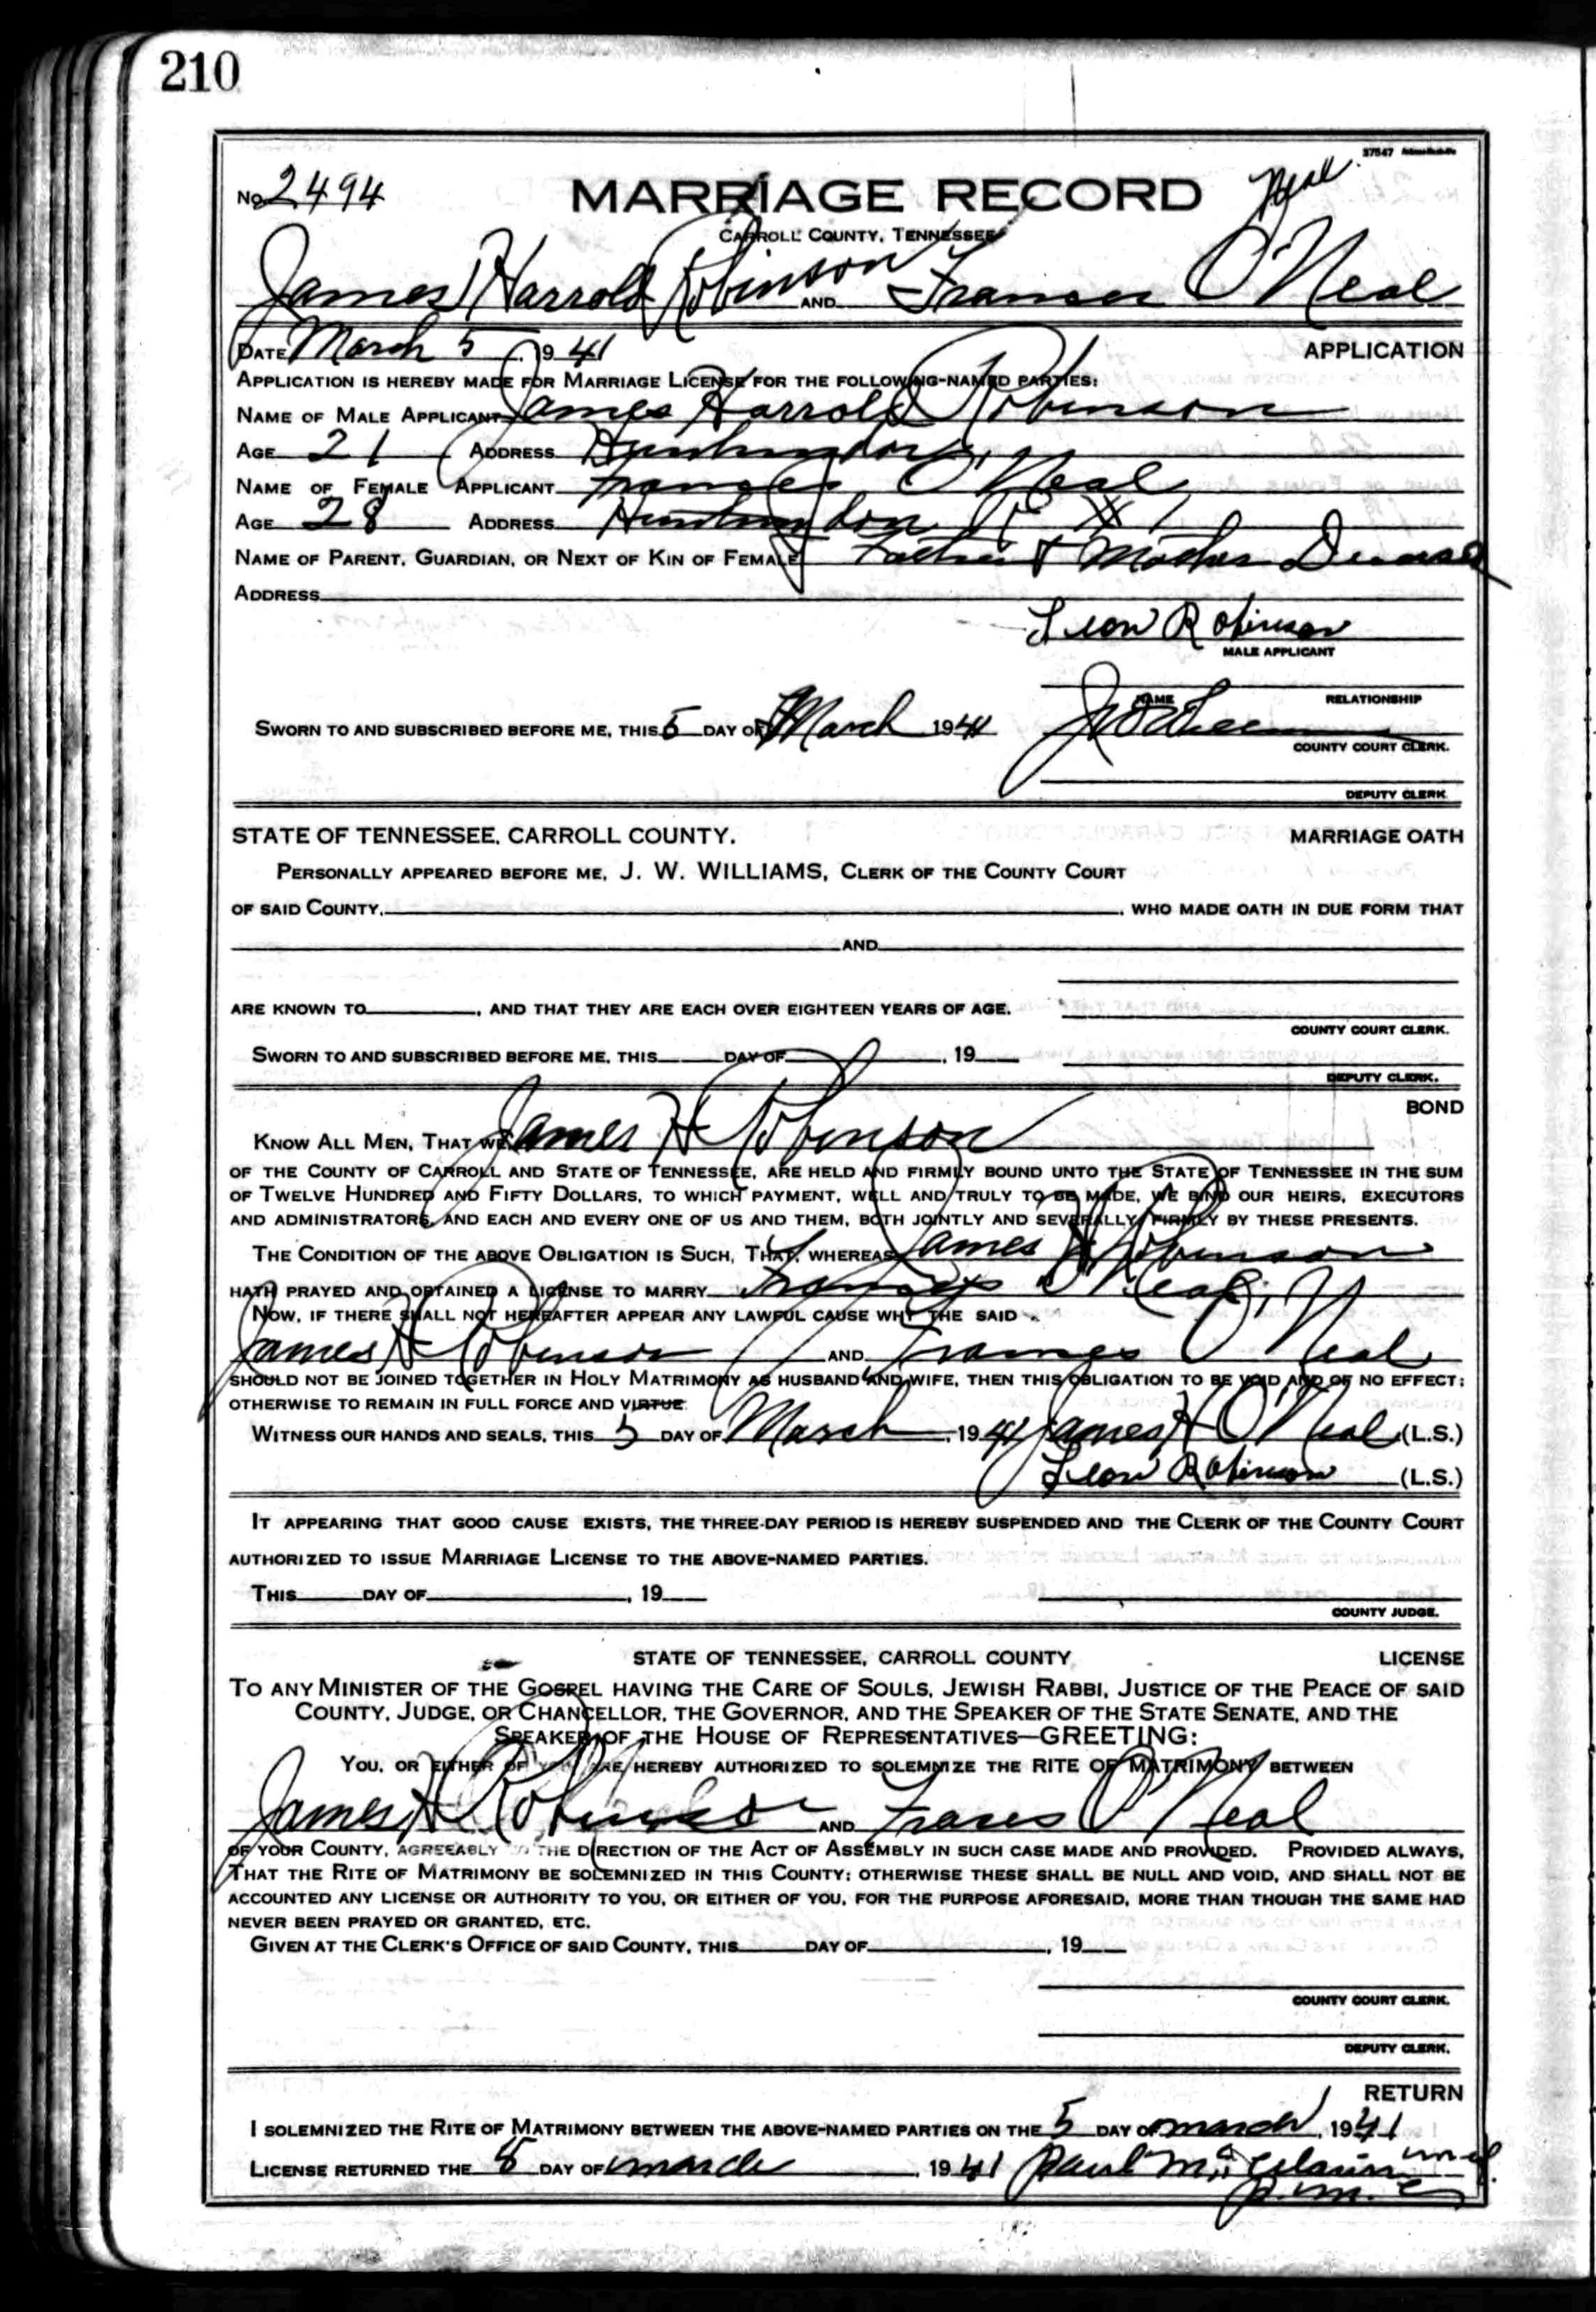 210
37547
No 2494 MARRIAGE RECORD Neal
CARROLL COUNTY, TENNESSEE
James Harrold Robinson AND Frances O'Neal
DATE March 5 1941 APPLICATION
APPLICATION IS HEREBY MADE FOR MARRIAGE LICENSE FOR THE FOLLOWING-NAMED PARTIES:
NAME OF MALE APPLICANT James Harrold Robinson
AGE 21 ADDRESS Huntingdon,
NAME OF FEMALE APPLICANT Frances O'Neal
AGE 28 ADDRESS Huntingdon R # 1
NAME OF PARENT, GUARDIAN, OR NEXT OF KIN OF FEMALE Father & Mother
ADDRESS
Leon Robinson
MALE APPLICANT
NAME RELATIONSHIP
SWORN TO AND SUBSCRIBED BEFORE ME, THIS 5 DAY OF March 1941
COUNTY COURT CLERK.
DEPUTY CLERK
STATE OF TENNESSEE, CARROLL COUNTY. MARRIAGE OATH
PERSONALLY APPEARED BEFORE ME, J. W. WILLIAMS, CLERK OF THE COUNTY COURT
OF SAID COUNTY, , WHO MADE OATH IN DUE FORM THAT
AND
ARE KNOWN TO , AND THAT THEY ARE EACH OVER EIGHTEEN YEARS OF AGE.
COUNTY COURT CLERK.
SWORN TO AND SUBSCRIBED BEFORE ME, THIS DAY OF , 19
DEPUTY CLERK.
BOND
KNOW ALL MEN, THAT WE James H Robinson
OF THE COUNTY OF CARROLL AND STATE OF TENNESSEE, ARE HELD AND FIRMLY BOUND UNTO THE STATE OF TENNESSEE IN THE SUM
OF TWELVE HUNDRED AND FIFTY DOLLARS, TO WHICH PAYMENT, WELL AND TRULY TO BE MADE, WE BIND OUR HEIRS, EXECUTORS
AND ADMINISTRATORS, AND EACH AND EVERY ONE OF US AND THEM, BOTH JOINTLY AND SEVERALLY, FIRMLY BY THESE PRESENTS.
THE CONDITION OF THE ABOVE OBLIGATION IS SUCH, THAT, WHEREAS James H Robinson
HATH PRAYED AND OBTAINED A LICENSE TO MARRY Frances O'Neal
NOW, IF THERE SHALL NOT HEREAFTER APPEAR ANY LAWFUL CAUSE WHY THE SAID
James H Robinson AND Frances O'Neal
SHOULD NOT BE JOINED TOGETHER IN HOLY MATRIMONY AS HUSBAND AND WIFE, THEN THIS OBLIGATION TO BE VOID AND OF NO EFFECT;
OTHERWISE TO REMAIN IN FULL FORCE AND VIRTUE
WITNESS OUR HANDS AND SEALS, THIS 5 DAY OF March , 1941 James H O'Neal (L.S.)
Leon Robinson (L.S.)
IT APPEARING THAT GOOD CAUSE EXISTS, THE THREE-DAY PERIOD IS HEREBY SUSPENDED AND THE CLERK OF THE COUNTY COURT
AUTHORIZED TO ISSUE MARRIAGE LICENSE TO THE ABOVE-NAMED PARTIES.
THIS DAY OF , 19
COUNTY JUDGE.
STATE OF TENNESSEE, CARROLL COUNTY LICENSE
TO ANY MINISTER OF THE GOSPEL HAVING THE CARE OF SOULS, JEWISH RABBI, JUSTICE OF THE PEACE OF SAID
COUNTY, JUDGE, OR CHANCELLOR, THE GOVERNOR, AND THE SPEAKER OF THE STATE SENATE, AND THE
SPEAKER OF THE HOUSE OF REPRESENTATIVES—GREETING:
YOU, OR EITHER OF YOU ARE HEREBY AUTHORIZED TO SOLEMNIZE THE RITE OF MATRIMONY BETWEEN
James H Robinson AND Frances O'Neal
OF YOUR COUNTY, AGREEABLY TO THE DIRECTION OF THE ACT OF ASSEMBLY IN SUCH CASE MADE AND PROVIDED. PROVIDED ALWAYS,
THAT THE RITE OF MATRIMONY BE SOLEMNIZED IN THIS COUNTY; OTHERWISE THESE SHALL BE NULL AND VOID, AND SHALL NOT BE
ACCOUNTED ANY LICENSE OR AUTHORITY TO YOU, OR EITHER OF YOU, FOR THE PURPOSE AFORESAID, MORE THAN THOUGH THE SAME HAD
NEVER BEEN PRAYED OR GRANTED, ETC.
GIVEN AT THE CLERK'S OFFICE OF SAID COUNTY, THIS DAY OF , 19
COUNTY COURT CLERK.
DEPUTY CLERK.
RETURN
I SOLEMNIZED THE RITE OF MATRIMONY BETWEEN THE ABOVE-NAMED PARTIES ON THE 5 DAY OF march , 1941
LICENSE RETURNED THE 8 DAY OF march , 1941 Paul